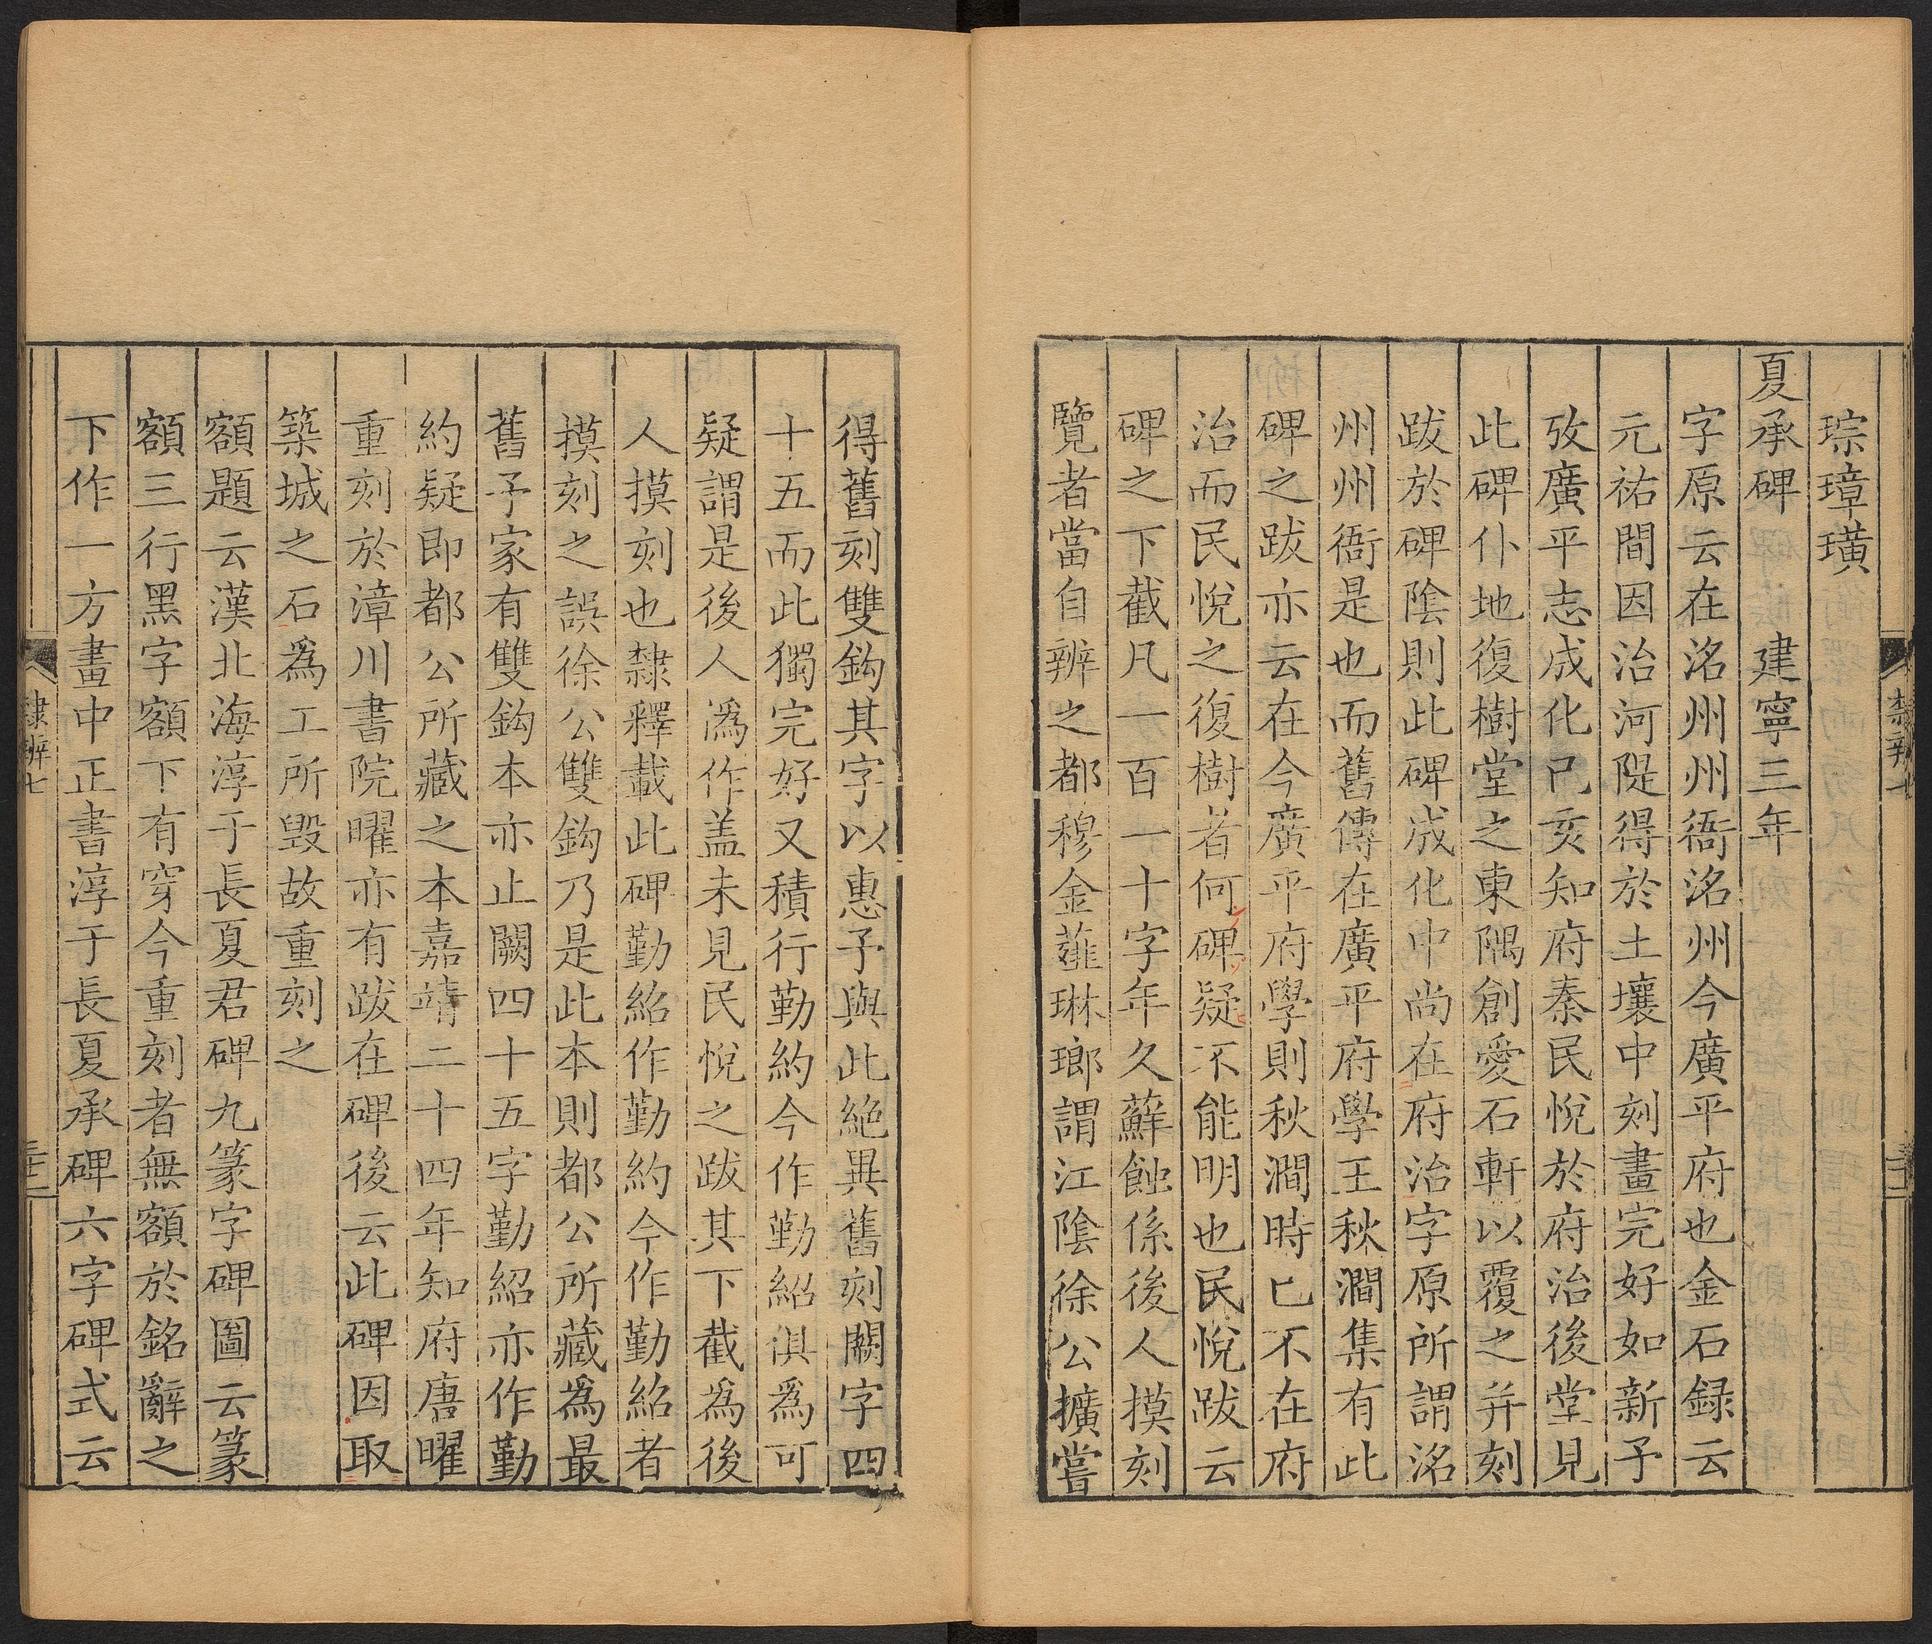 琮璋璜
夏承碑　建寧三年
字原云在洺州州衙洺州今廣平府也金石録云
元祐間因治河隄得於土壤中刻畫完好如新予
攷廣平志成化己亥知府秦民悅於府治後堂見
此碑仆地復樹堂之東隅創愛石軒以覆之并刻
跋於碑陰則此碑成化中尚在府治字原所謂洺
州州衙是也而舊傳在廣平府學王秋澗集有此
碑之跋亦云在今廣平府學則秋澗時已不在府
治而民悅之復樹者何碑疑不能明也民悅跋云
碑之下截凡一百一十字年久蘚蝕係後人摸刻
覽者當自辨之都穆金薤琳瑯謂江陰徐公擴嘗
得舊刻雙鈎其字以惠予與此絶異舊刻闕字四
十五而此獨完好又積行勤約今作勤紹俱爲可
疑謂是後人僞作盖未見民悅之跋其下截爲後
人摸刻也隸釋載此碑勤紹作勤約今作勤紹者
摸刻之誤徐公雙鈎乃是此本則都公所藏爲最
舊予家有雙鈎本亦止闕四十五字勤紹亦作勤
約疑即都公所藏之本嘉靖二十四年知府唐曜
重刻於漳川書院曜亦有跋在碑後云此碑因取
築城之石爲工所毁故重刻之
額題云漢北海淳于長夏君碑九篆字碑圖云篆
額三行黑字額下有穿今重刻者無額於銘辭之
下作一方畫中正書淳于長夏承碑六字碑式云
隸辨七